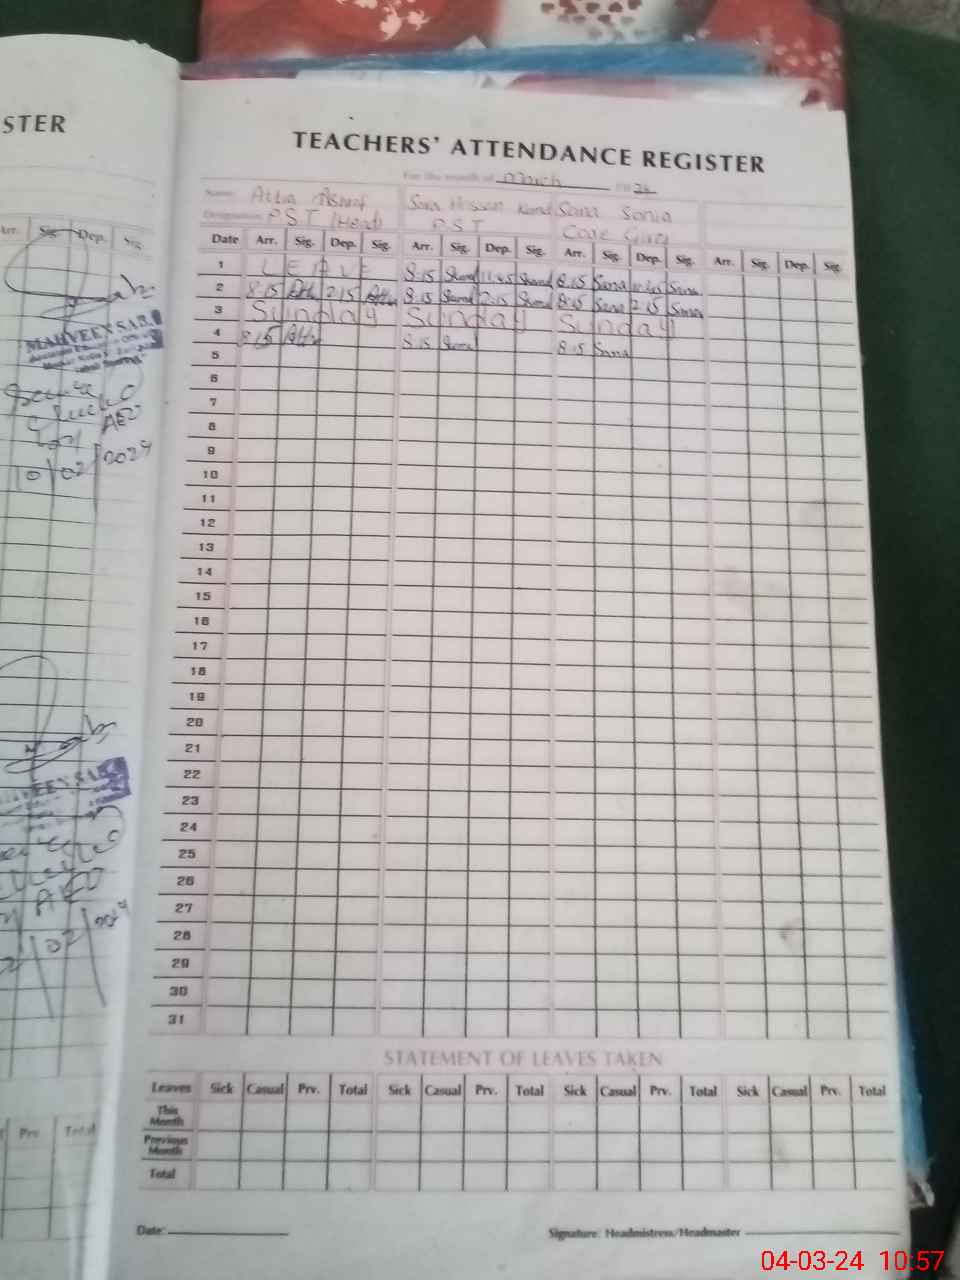 STER
TEACHERS' ATTENDANCE REGISTER
For the month of March 2024
Name: Attia Ashraf Sana Sonia
Designation: P.S.T (Head) P.S.T Care Giver
Arr. Sig. Dep. Sig.
Date Arr. Sig. Dep. Sig. Arr. Sig. Dep. Sig. Arr. Sig. Dep. Sig. Arr. Sig. Dep. Sig.
1 LEAVE 8:15 11:45 8:15 Sana Sana
2 8:15 2:15 8:15 2:15 8:15 Sana 2:15 Sana
3 Sunday Sunday Sunday
4 8:15 8:15 8:15 Sana
5
6
7
8
9
10
11
12
13
14
15
16
17
18
19
20
21
22
23
24
25
26
27
28
29
30
31
MAHVEEN SABA
AEO
10/02/2024
AEO
STATEMENT OF LEAVES TAKEN
Leaves Sick Casual Prv. Total Sick Casual Prv. Total Sick Casual Prv. Total Sick Casual Prv. Total
This Month
Previous Month
Total
Prv Total
Date:
Signature: Headmistress/Headmaster
04-03-24 10:57